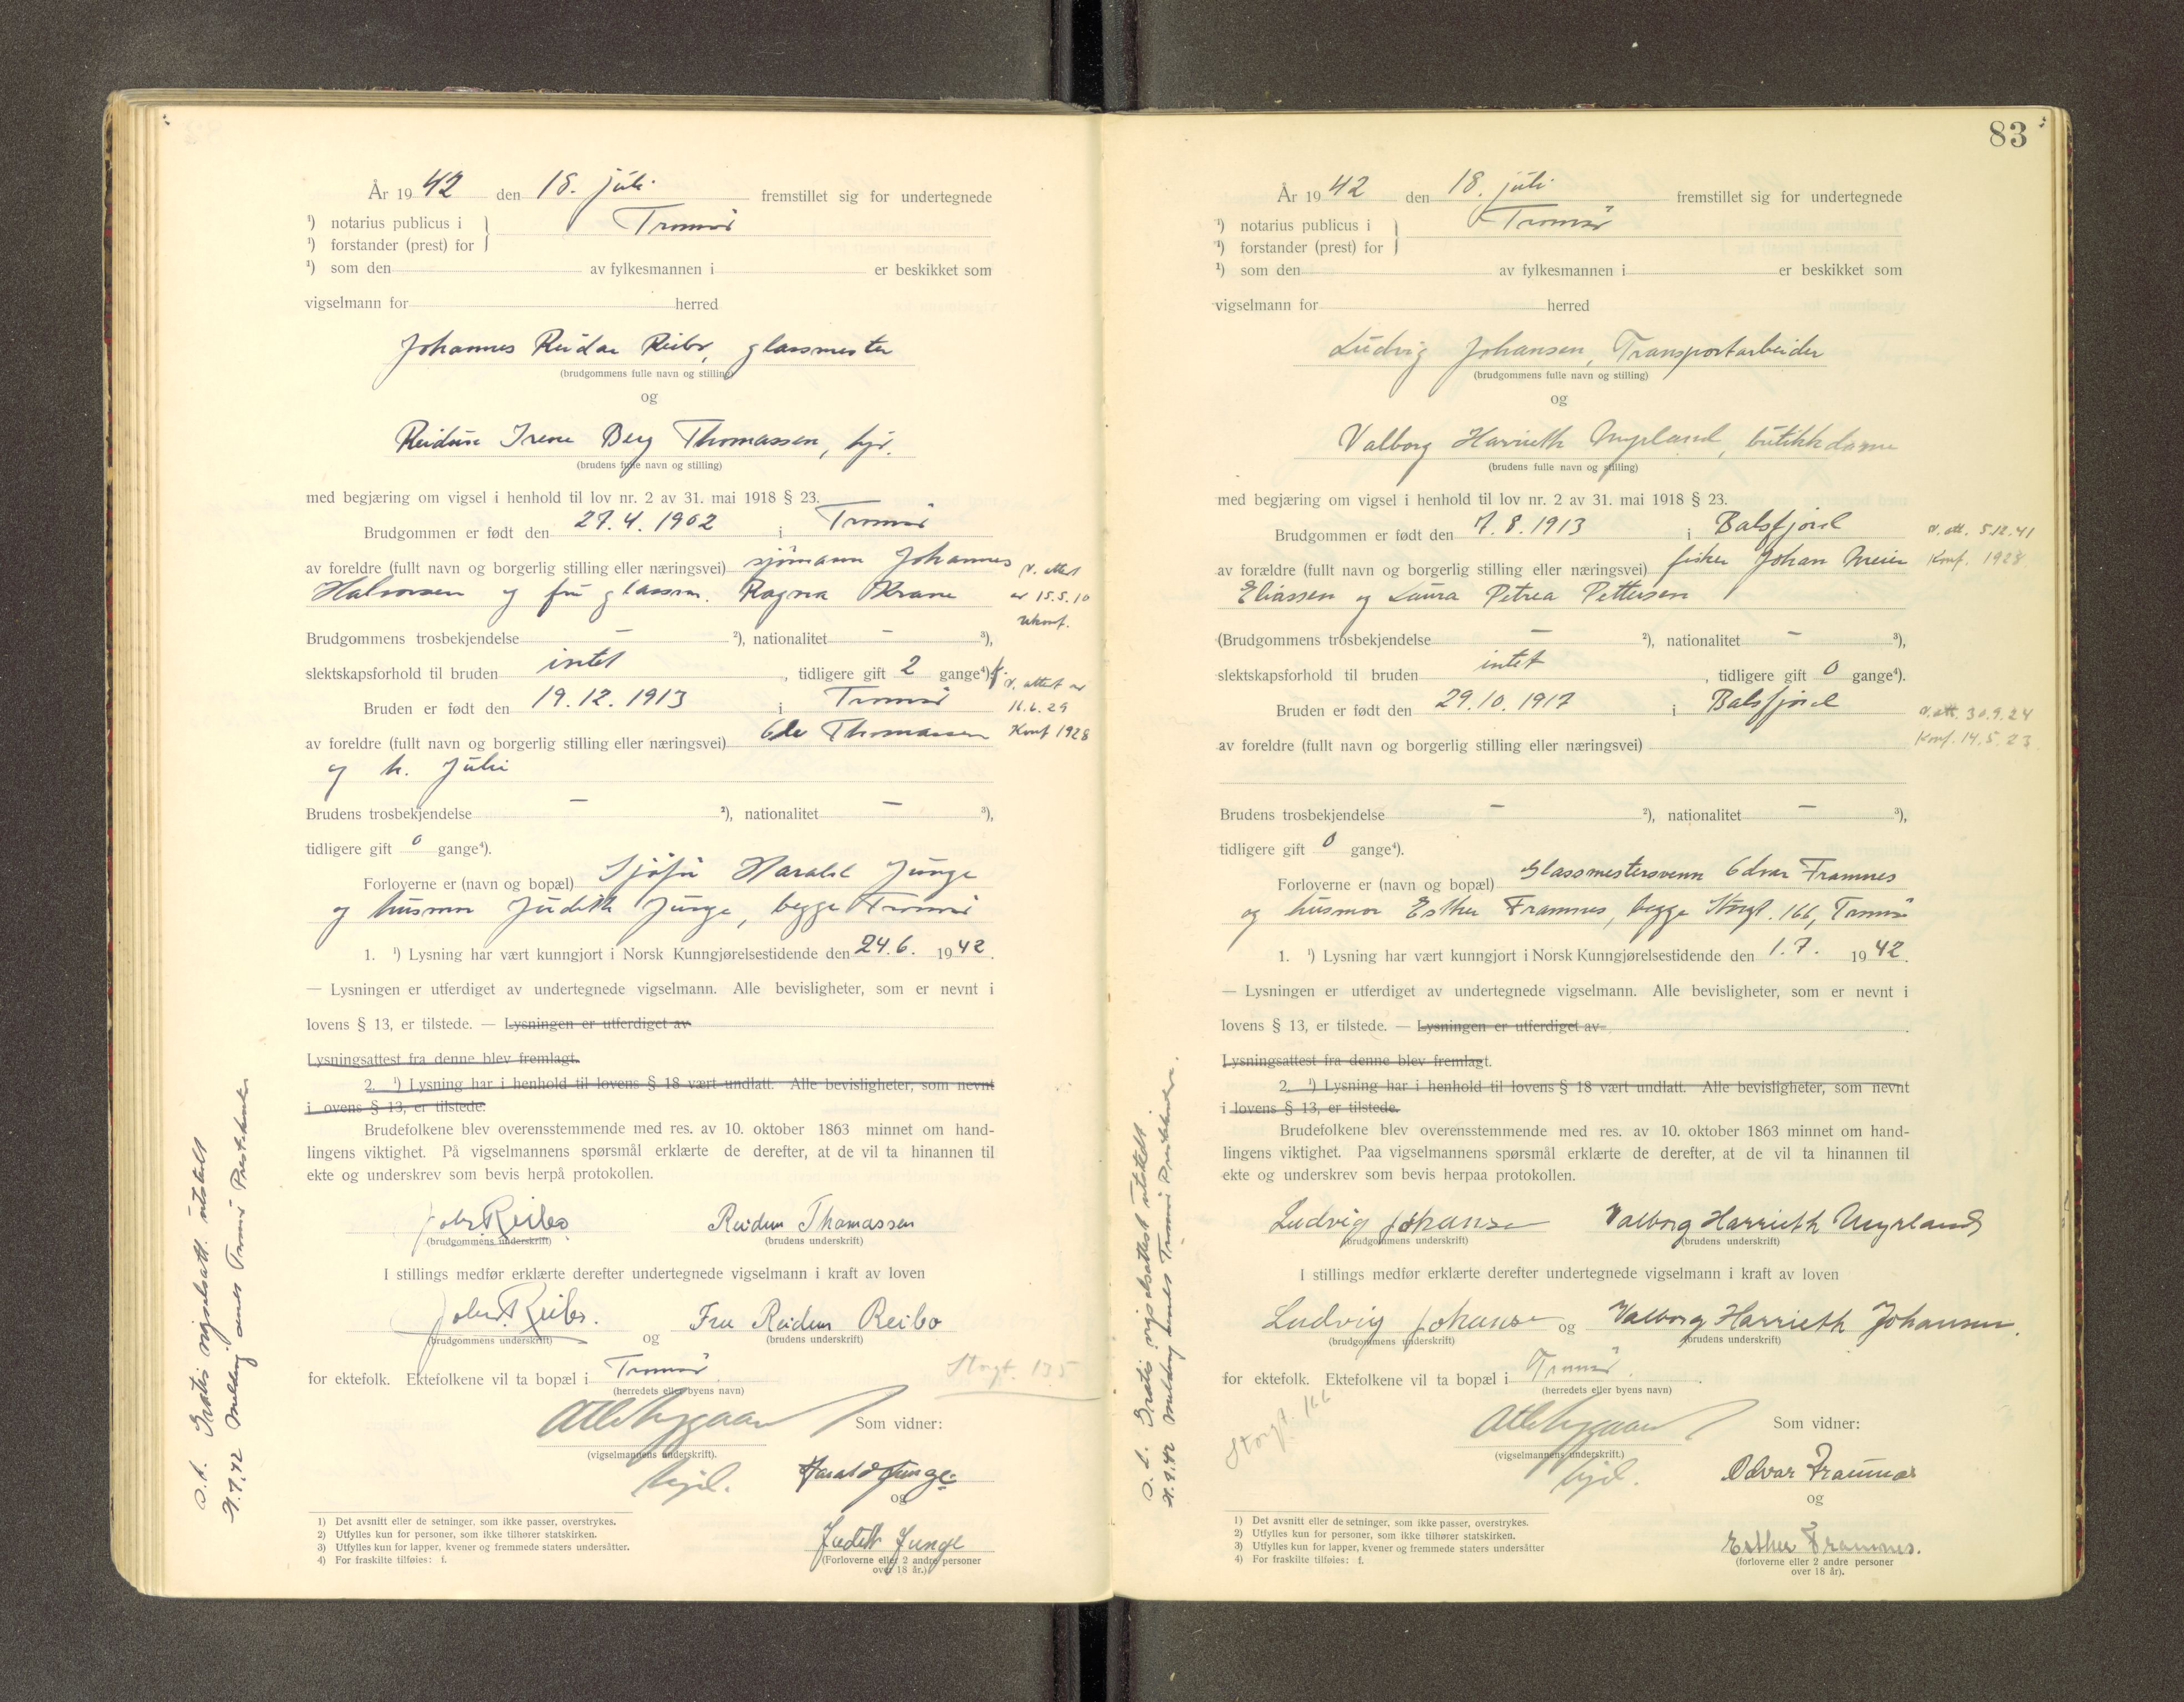 År 1942 den 18. juli fremstillet sig for undertegnede
¹) notarius publicus i } Tromsö
¹) forstander (prest) for
¹) som den av fylkesmannen i er beskikket som
vigselmann for herred
Johannes Reidar Reibo, glassmester
(brudgommens fulle navn og stilling)
og
Reidun Irene Berg Thomassen, hjv.
(brudens fulle navn og stilling)
med begjæring om vigsel i henhold til lov nr. 2 av 31. mai 1918 § 23.
Brudgommen er født den 27.4.1902 i Tromsö
av foreldre (fullt navn og borgerlig stilling eller næringsvei) sjömann Johannes
Halvorsen og fru glassm. Ragna Krane
V. attest
av 15.5.10
Ukonf.
Brudgommens trosbekjendelse — ²), nationalitet — ³),
slektskapsforhold til bruden intet, tidligere gift 2 gange⁴) f.
Bruden er født den 19.12.1913 i Tromsö
av foreldre (fullt navn og borgerlig stilling eller næringsvei) Edv Thomassen
og h. Julie
V. attest av
16.6.29
Konf 1928
Brudens trosbekjendelse — ²), nationalitet — ³),
tidligere gift 0 gange⁴).
Forloverne er (navn og bopæl) Sjåför Harald Junge
og husmor Judith Junge, begge Tromsö
1. ¹) Lysning har vært kunngjort i Norsk Kunngjørelsestidende den 24.6. 1942.
— Lysningen er utferdiget av undertegnede vigselmann. Alle bevisligheter, som er nevnt i
lovens § 13, er tilstede. — Lysningen er utferdiget av
Lysningsattest fra denne blev fremlagt.
2. ¹) Lysning har i henhold til lovens § 18 vært undlatt. Alle bevisligheter, som nevnt
i ovens § 13, er tilstede.
Brudefolkene blev overensstemmende med res. av 10. oktober 1863 minnet om hand-
lingens viktighet. På vigselmannens spørsmål erklærte de derefter, at de vil ta hinannen til
ekte og underskrev som bevis herpå protokollen.
Johs Reibo Reidun Thomassen
(brudgommens underskrift) (brudens underskrift)
I stillings medfør erklærte derefter undertegnede vigselmann i kraft av loven
Johs. Reibo. og Fru Reidun Reibo
(brudgommens underskrift) (brudens underskrift)
for ektefolk. Ektefolkene vil ta bopæl i Tromsö
(herredets eller byens navn)
Storgt. 135
Som vidner:
(vigselmannens underskrift).
Harald Junge
og
Judith Junge
(Forloverne eller 2 andre personer
over 18 år.)
1) Det avsnitt eller de setninger, som ikke passer, overstrykes.
2) Utfylles kun for personer, som ikke tilhører statskirken.
3) Utfylles kun for lapper, kvener og fremmede staters undersåtter.
4) For fraskilte tilføies: f.
Gratis vigselsatt. utstedt
melding sendt Tromsö Prestekontor
83
År 1942 den 18. juli fremstillet sig for undertegnede
¹) notarius publicus i } Tromsö
¹) forstander (prest) for
¹) som den av fylkesmannen i er beskikket som
vigselmann for herred
Ludvig Johansen, Transportarbeider
(brudgommens fulle navn og stilling)
og
Valborg Harrieth Myrland, butikkdame
(brudens fulle navn og stilling)
med begjæring om vigsel i henhold til lov nr. 2 av 31. mai 1918 § 23.
Brudgommen er født den 7.8.1913 i Balsfjord
av forældre (fullt navn og borgerlig stilling eller næringsvei) fisker Johan Meier
Eliassen og Laura Petrea Pettersen
V. att. 5.12.41
Konf. 1928
(Brudgommens trosbekjendelse — ²), nationalitet — ³),
slektskapsforhold til bruden intet, tidligere gift 0 gange⁴).
Bruden er født den 29.10.1917 i Balsfjord
av foreldre (fullt navn og borgerlig stilling eller næringsvei)
V. att. 30.9.24
Konf. 14.5.23
Brudens trosbekjendelse — ²), nationalitet — ³),
tidligere gift 0 gange⁴).
Forloverne er (navn og bopæl) Glassmestersvenn Edvar Framnes
og husmor Esther Framnes, begge Storgt. 166, Tromsö
1. ¹) Lysning har vært kunngjort i Norsk Kunngjørelsestidende den 1.7. 1942.
— Lysningen er utferdiget av undertegnede vigselmann. Alle bevisligheter, som er nevnt i
lovens § 13, er tilstede. — Lysningen er utferdiget av
Lysningsattest fra denne blev fremlagt.
2. ¹) Lysning har i henhold til lovens § 18 vært undlatt. Alle bevisligheter, som nevnt
i lovens § 13, er tilstede.
Brudefolkene blev overensstemmende med res. av 10. oktober 1863 minnet om hand-
lingens viktighet. Paa vigselmannens spørsmål erklærte de derefter, at de vil ta hinannen til
ekte og underskrev som bevis herpaa protokollen.
Ludvig Johansen Valborg Harrieth Myrland
(brudgommens underskrift) (brudens underskrift)
I stillings medfør erklærte derefter undertegnede vigselmann i kraft av loven
Ludvig Johansen og Valborg Harrieth Johansen.
(brudgommens underskrift) (brudens underskrift)
for ektefolk. Ektefolkene vil ta bopæl i Tromsö.
(herredets eller byens navn)
Storgt. 166
Som vidner:
(vigselmannens underskrift.)
Odvar Framnes
og
Esther Framnes.
(forloverne eller 2 andre personer
over 18 år).
1) Det avsnitt eller de setninger, som ikke passer, overstrykes.
2) Utfylles kun for personer, som ikke tilhører statskirken.
3) Utfylles kun for lapper, kvener og fremmede staters undersåtter
4) For fraskilte tilføies: f.
Gratis vigselsattest utstedt.
melding sendt Tromsö Prestekontor.